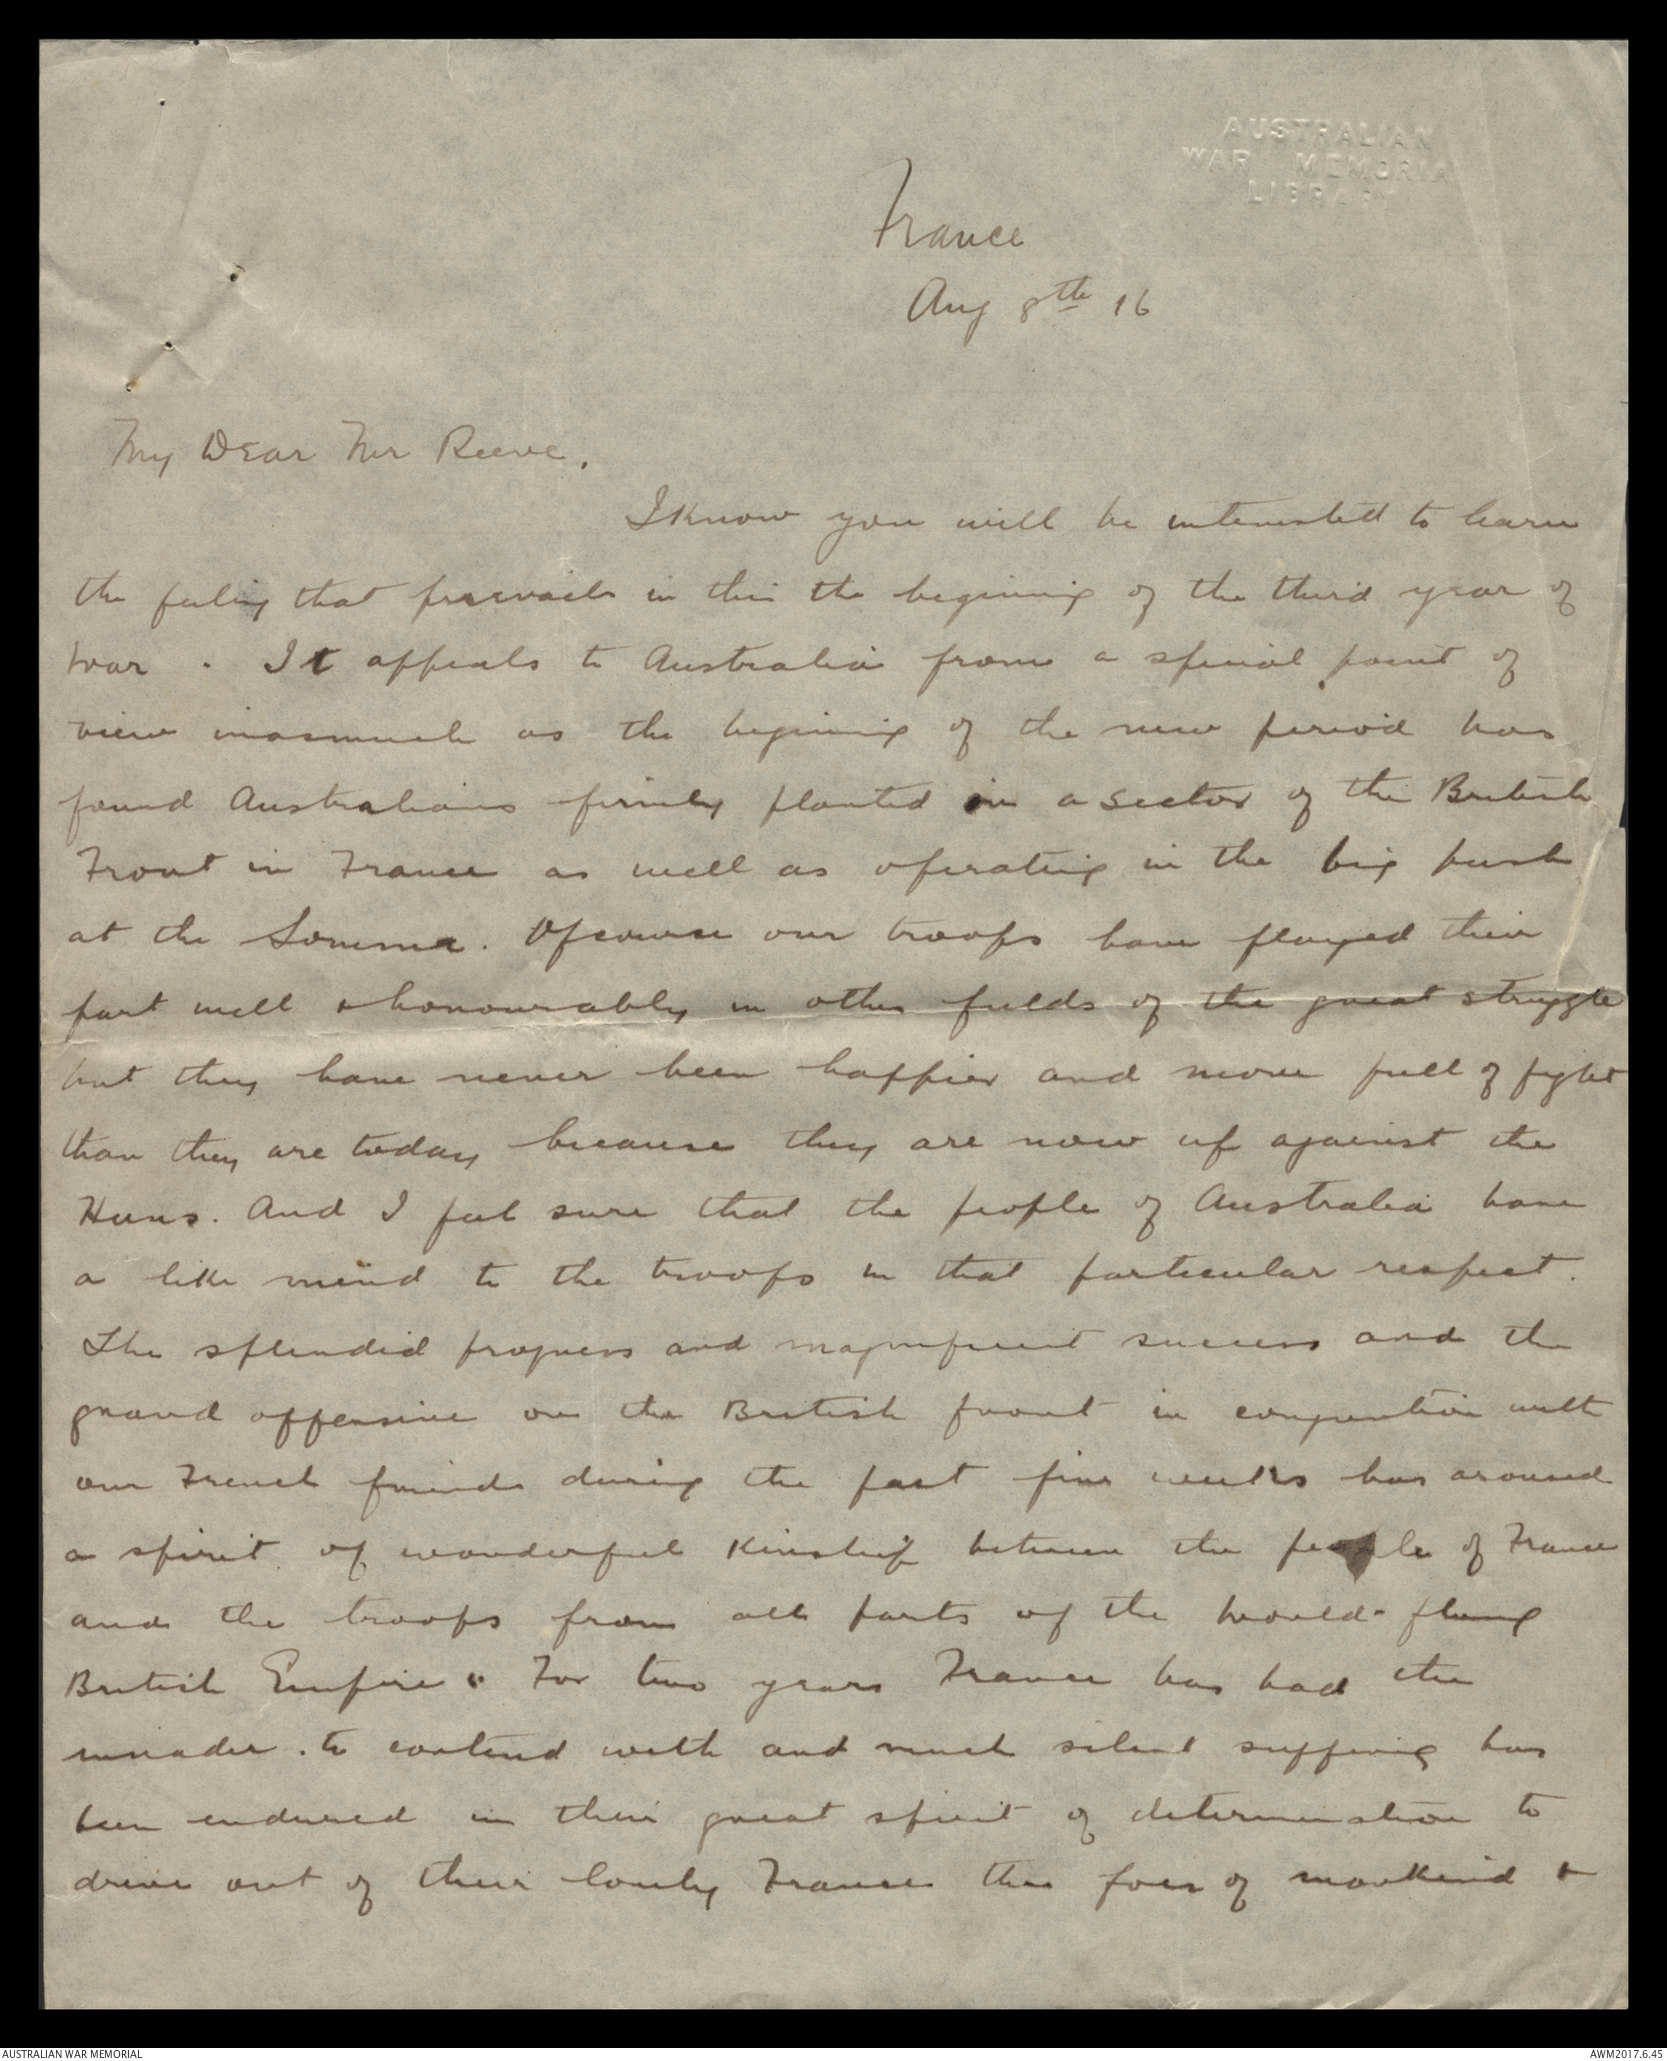 AUSTRALIAN
WAR MEMORIAL
LIBRARY
France
Aug 8th 16
My Dear Mr Reeve,
I know you will be interested to learn
the feeling that prevails in this the beginning of the third year of
war. It appeals to Australia from a special point of
view inasmuch as the beginning of the new period has
found Australians firmly planted in a sector of the British
Front in France as well as operating in the big push
at the Somme. Ofcourse our troops have played their
part well & honourably in other fields of the great struggle
but they have never been happier and more full of fight
than they are today because they are now up against the
Huns. And I feel sure that the people of Australia have
a like mind to the troops in that particular respect.
The splendid progress and magnificent success and the
grand offensive on the British front in conjunction with
our French friends during the past five weeks has aroused
a spirit of wonderful kinship between the people of France
and the troops from all parts of the world-flung
British Empire. For two years France has had the
invader to contend with and much silent suffering has
been endured in their great spirit of determination to
drive out of their lovely France the foes of mankind &
AUSTRALIAN WAR MEMORIAL
AWM2017.6.45